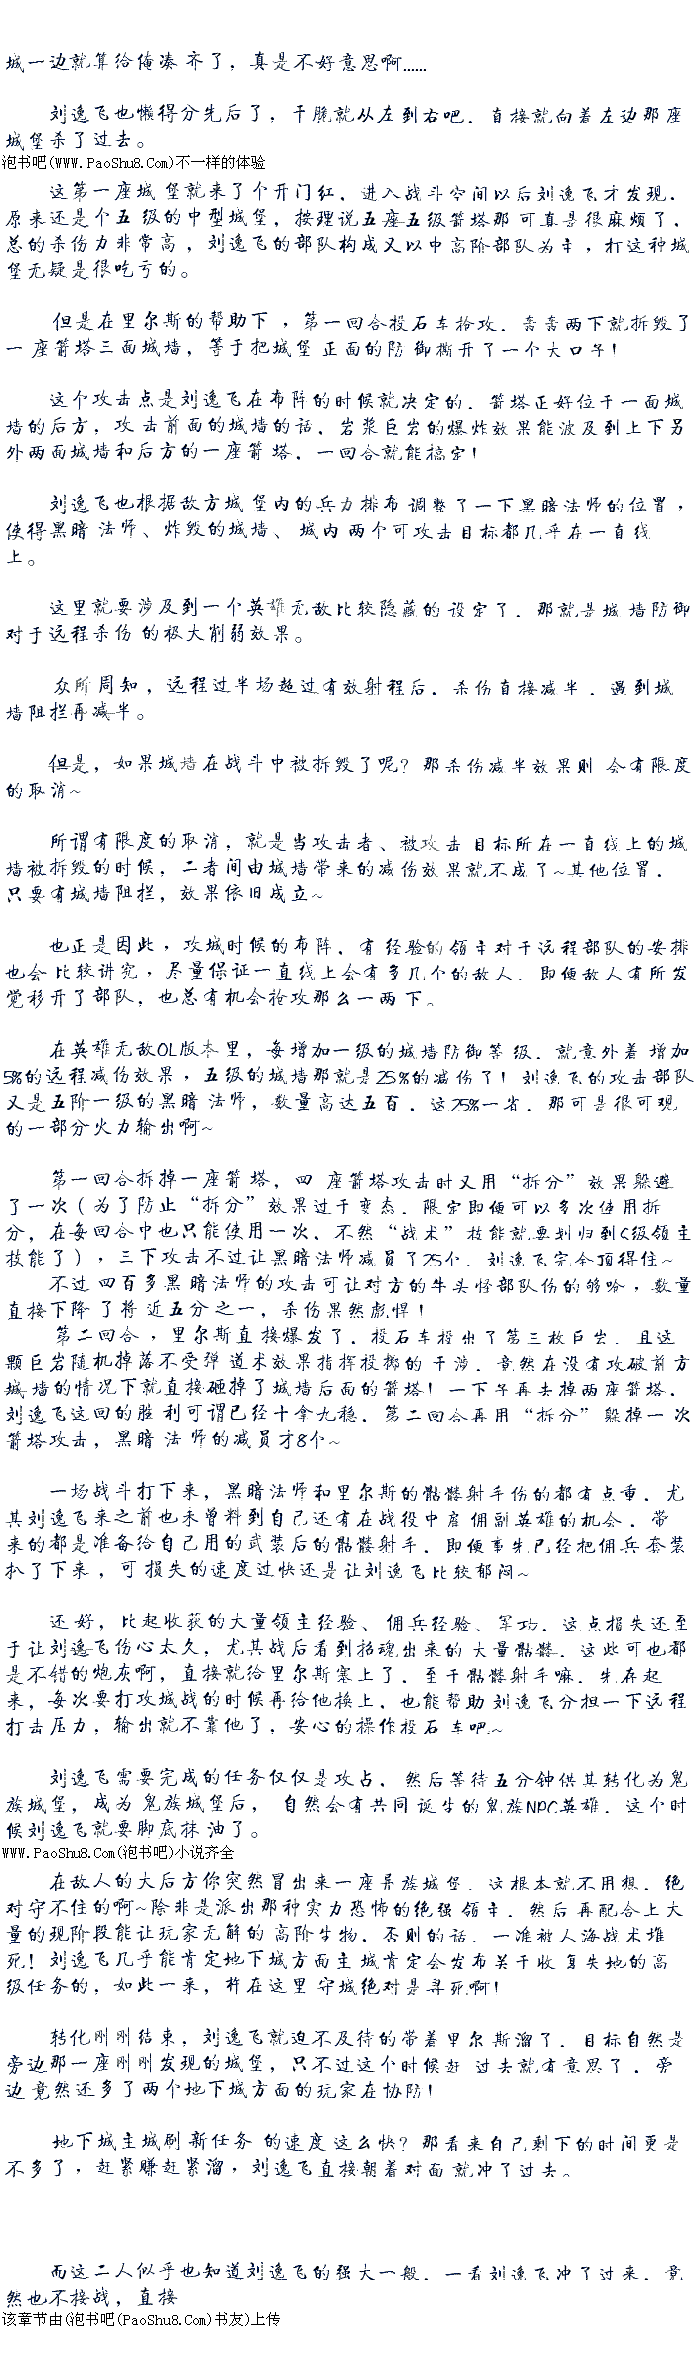 城一边就算给俺凑 齐了，真是不好意思啊……
刘逸飞也懒得分先后了，干脆就从左到右吧．直接就向着左边那座
城堡杀了过去。
泡书吧(WWW.PaoShu8.Com)不一样的体验
这第一座城 堡就来了个开门红．进入战斗空间以后刘逸飞才发现．
原来还是个五 级的中型城堡，按理说五座五级箭塔那 可真是很麻烦了．
总的杀伤力非常高，刘逸飞的部队构成又以中高阶部队为主，打这种城
堡无疑是很吃亏的。
但是在里尔斯的帮助下 ，第一回合投石车抢攻．轰轰两下就拆毁了
一 座箭塔三面城墙，等于把城堡 正面的防 御撕开了一个大口子！
这个攻击点是刘逸飞在布阵的时候就决定的．箭塔正好位于一面城
墙的后方，攻 击前面的城墙的话．岩浆巨岩的爆炸效果能波及到上下另
外两面城墙和后方的一座箭 塔．一回合就能搞定！
刘逸飞也根据敌方城 堡内的兵力排布 调整了一下黑暗法师的位置，
使得黑暗 法师、炸毁的城墙、 城内 两个可攻击目标都几乎在一直线
上。
这里就要涉及到一个英雄无敌比较隐藏的 设定了．那就是城 墙防御
对于远程杀伤 的极大削弱效果。
众所周知，远程过半场超过有效射程后．杀伤直接减半．遇到城
墙阻拦再减半。
但是，如果城墙在战斗中被拆毁了呢？那杀伤减半效果则 会有限度
的取消~
所谓有限度的取消，就是当攻击者、被攻 击 目标所在一直线上的城
墙被拆毁的时候，二者间由城墙带来的减伤效 果就不成了~其他位置．
只要有城墙阻拦，效果依旧成立~
也正是因此，攻城时候的布阵．有 经验的领主对于远程部队的安排
也会 比较讲究，尽量保证一直线上会有多几个的敌人．即便敌人有所发
觉移开了部队，也总有机会抢攻那么一两 下。
在英雄无敌OL版本里，每增加一级的城墙防御等 级．就意外着 增加
5%的远程减伤效果，五级的城墙那就是25%的减伤了！刘逸飞的攻击部队
又是五阶一级的黑暗 法师，数量高达五百．这25%一省．那可是很可观
的一部分火力输出啊~
第一回合拆掉一座箭 塔，四 座箭塔攻击时又用“拆分”效果躲避
了一次（为了防止“拆分”效果过于变态．限定即便可以多次使用拆
分，在每回合中也只能使用一次．不然“战术”技能就要划归到C级领主
技能了），三下攻击不过让黑暗法师减员了25个．刘逸飞完全顶得住~
不过 四百多黑暗法师的攻击可让对方的牛头怪部队伤的够呛，数量
直接下降 了将 近五分之一．杀伤果然彪悍！
第二回合，里尔斯直接爆发了．投石车投出了第三枚巨岩．且这
颗巨岩随机掉落不受弹 道术效果指挥投掷的 干涉．竟然在没有攻破前方
城墙的情况下就直接砸掉了城墙后面的箭塔！一下子再去掉两座箭塔．
刘逸飞这回的胜 利可谓已经十拿九稳．第二回合再用“拆分”躲掉一次
箭塔攻击，黑暗 法 师的减员才8个~
一场战斗打下来，黑暗法师和里尔斯的骷髅射手伤的都有点重．尤
其刘逸飞来之前也未曾料到自己还有在战役中雇佣副英雄的机会．带
来的都是准备给自己用的武装后的骷髅射手．即便事先已经把佣兵套装
扒了下来，可 损失的速度过快还是让刘逸飞比较郁闷~
还好，比起收获的大量领主经验、佣兵经验、军功．这点损失还至
于让刘逸飞伤心太久，尤其战后看到招魂出来的大量骷髅．这些可也都
是不错的炮灰啊，直接就给里尔斯塞上了．至于骷髅射手嘛．先存起
来，每次要打攻城战的时候再给他换上．也能帮助刘逸飞分担一下远程
打击压力，输出就不靠他了，安心的操作投石 车吧~
刘逸飞需要完成的任务仅仅是攻占．然后等待五分钟供其转化为鬼
族城堡，成为 鬼族城堡后， 自然会有共同诞生的鬼族NPC英雄．这个时
候刘逸飞就要脚底抹 油了。
WWW.PaoShu8.Com(泡书吧)小说齐全
在敌人的大后方你突然冒出来一座异族城堡．这根本就不用想．绝
对守不住的啊~除非是派出那种实力恐怖的绝强领主．然后再配合上大
量的现阶段能让玩家无解的 高阶生物．否则的话．一准被人海战术堆
死！刘逸飞几乎能肯定地下城方面主 城肯定会发布关于收 复失地的高
级任务的，如此一来，杵在这里 守城绝对是寻死啊！
转化刚刚结束，刘逸飞就迫不及待的带着里尔斯溜了．目标自然是
旁边那一座刚刚发现的城堡，只不过这个时候赶 过去就有意思了．旁
边竟然还多了两个地下城方面的玩家在协防！
地下城主城刷新任务 的速度这么快？那看来自己剩下的时间更是
不多了，赶紧赚赶紧溜，刘逸飞直接朝着对面就冲了过去。
而这二人似乎也知道刘逸飞的强大一般．一看刘逸飞冲了过来．竟
然也不接战，直接
该章节由(泡书吧(PaoShu8.Com)书友)上传